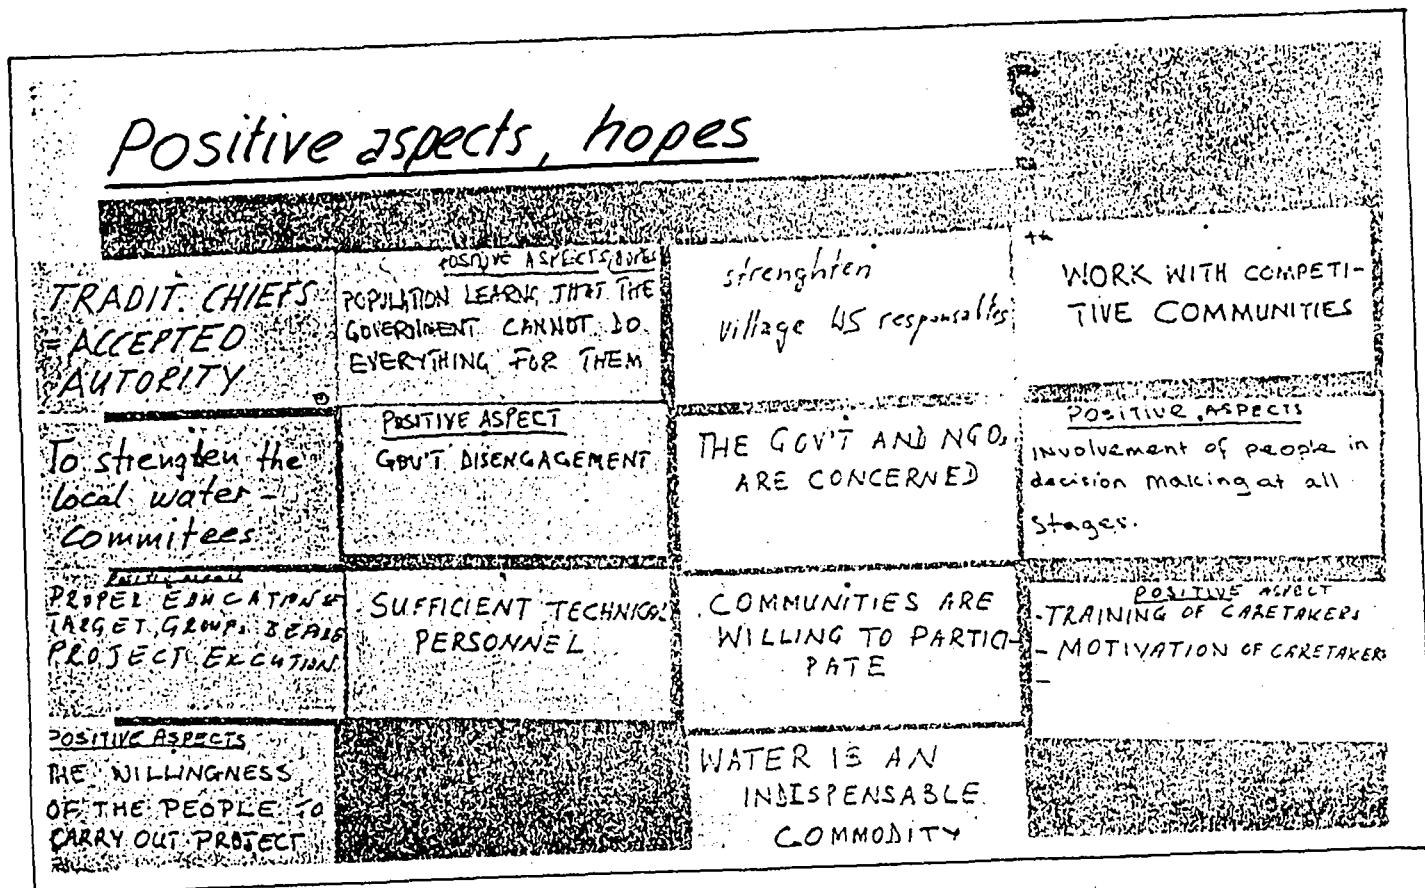 Positive aspects, hopes
TRADIT. CHIEFS
ACCEPTED
AUTORITY
To strengten the
local water-
Commitees
PROPER EDUCATION OF
TARGET GROUPS BEFORE
PROJECT EXCUTION
POSITIVE ASPECTS
THE WILLINGNESS
OF THE PEOPLE TO
CARRY OUT PROJECT
POSITIVE ASPECTS, HOPES
POPULATION LEARNS THAT THE
GOVERNMENT CANNOT DO
EVERYTHING FOR THEM
POSITIVE ASPECT
GOV'T DISENGAGEMENT
SUFFICIENT TECHNICAL
PERSONNEL
strenghten
village WS
THE GOV'T AND NGOs
ARE CONCERNED
COMMUNITIES ARE
WILLING TO PARTICI-
PATE
WATER IS AN
INDISPENSABLE
COMMODITY
WORK WITH COMPETI-
TIVE COMMUNITIES
POSITIVE ASPECTS
involvement of people in
decision making at all
stages.
POSITIVE ASPECT
-TRAINING OF CARETAKERS
- MOTIVATION OF CARETAKERS
-